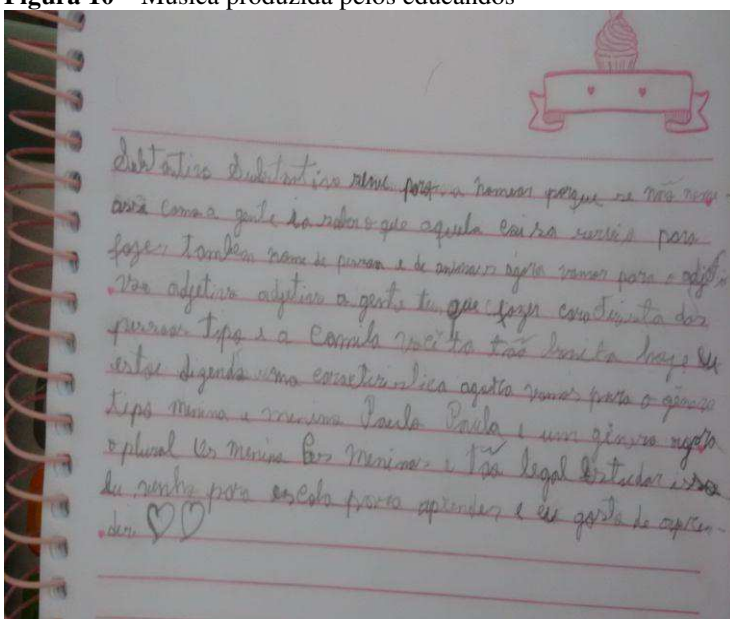 Figura 10 – Música produzida pelos educandos
Substantivo Substantivo serve para a nomear porque se não nome-
asse como a gente ia sabe o que aquela coisa servia para
fazer também nome de pessoa e de animais agora vamos para o adjeti
vo adjetivo adjetivo a gente te que fazer das
pessoas tipo a Camila você ta tão bonita hoje eu
estou dizendo uma característica agora vamos para o gênero
tipo menina e menino Paulo Paula e um gênero agora
o plural Os menino Os meninas e tão legal Estudar isso
Eu venho para escola para aprender e eu gosto de apren-
der